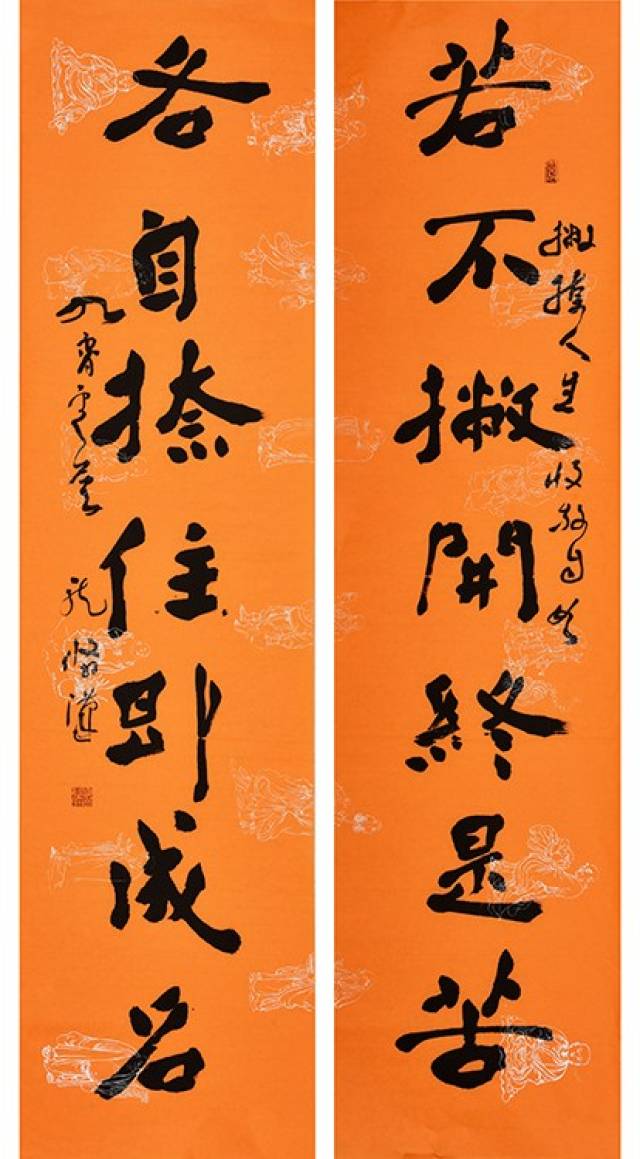 若不撇開終是苦
撇捺人生收放自如
各自捺住即成名